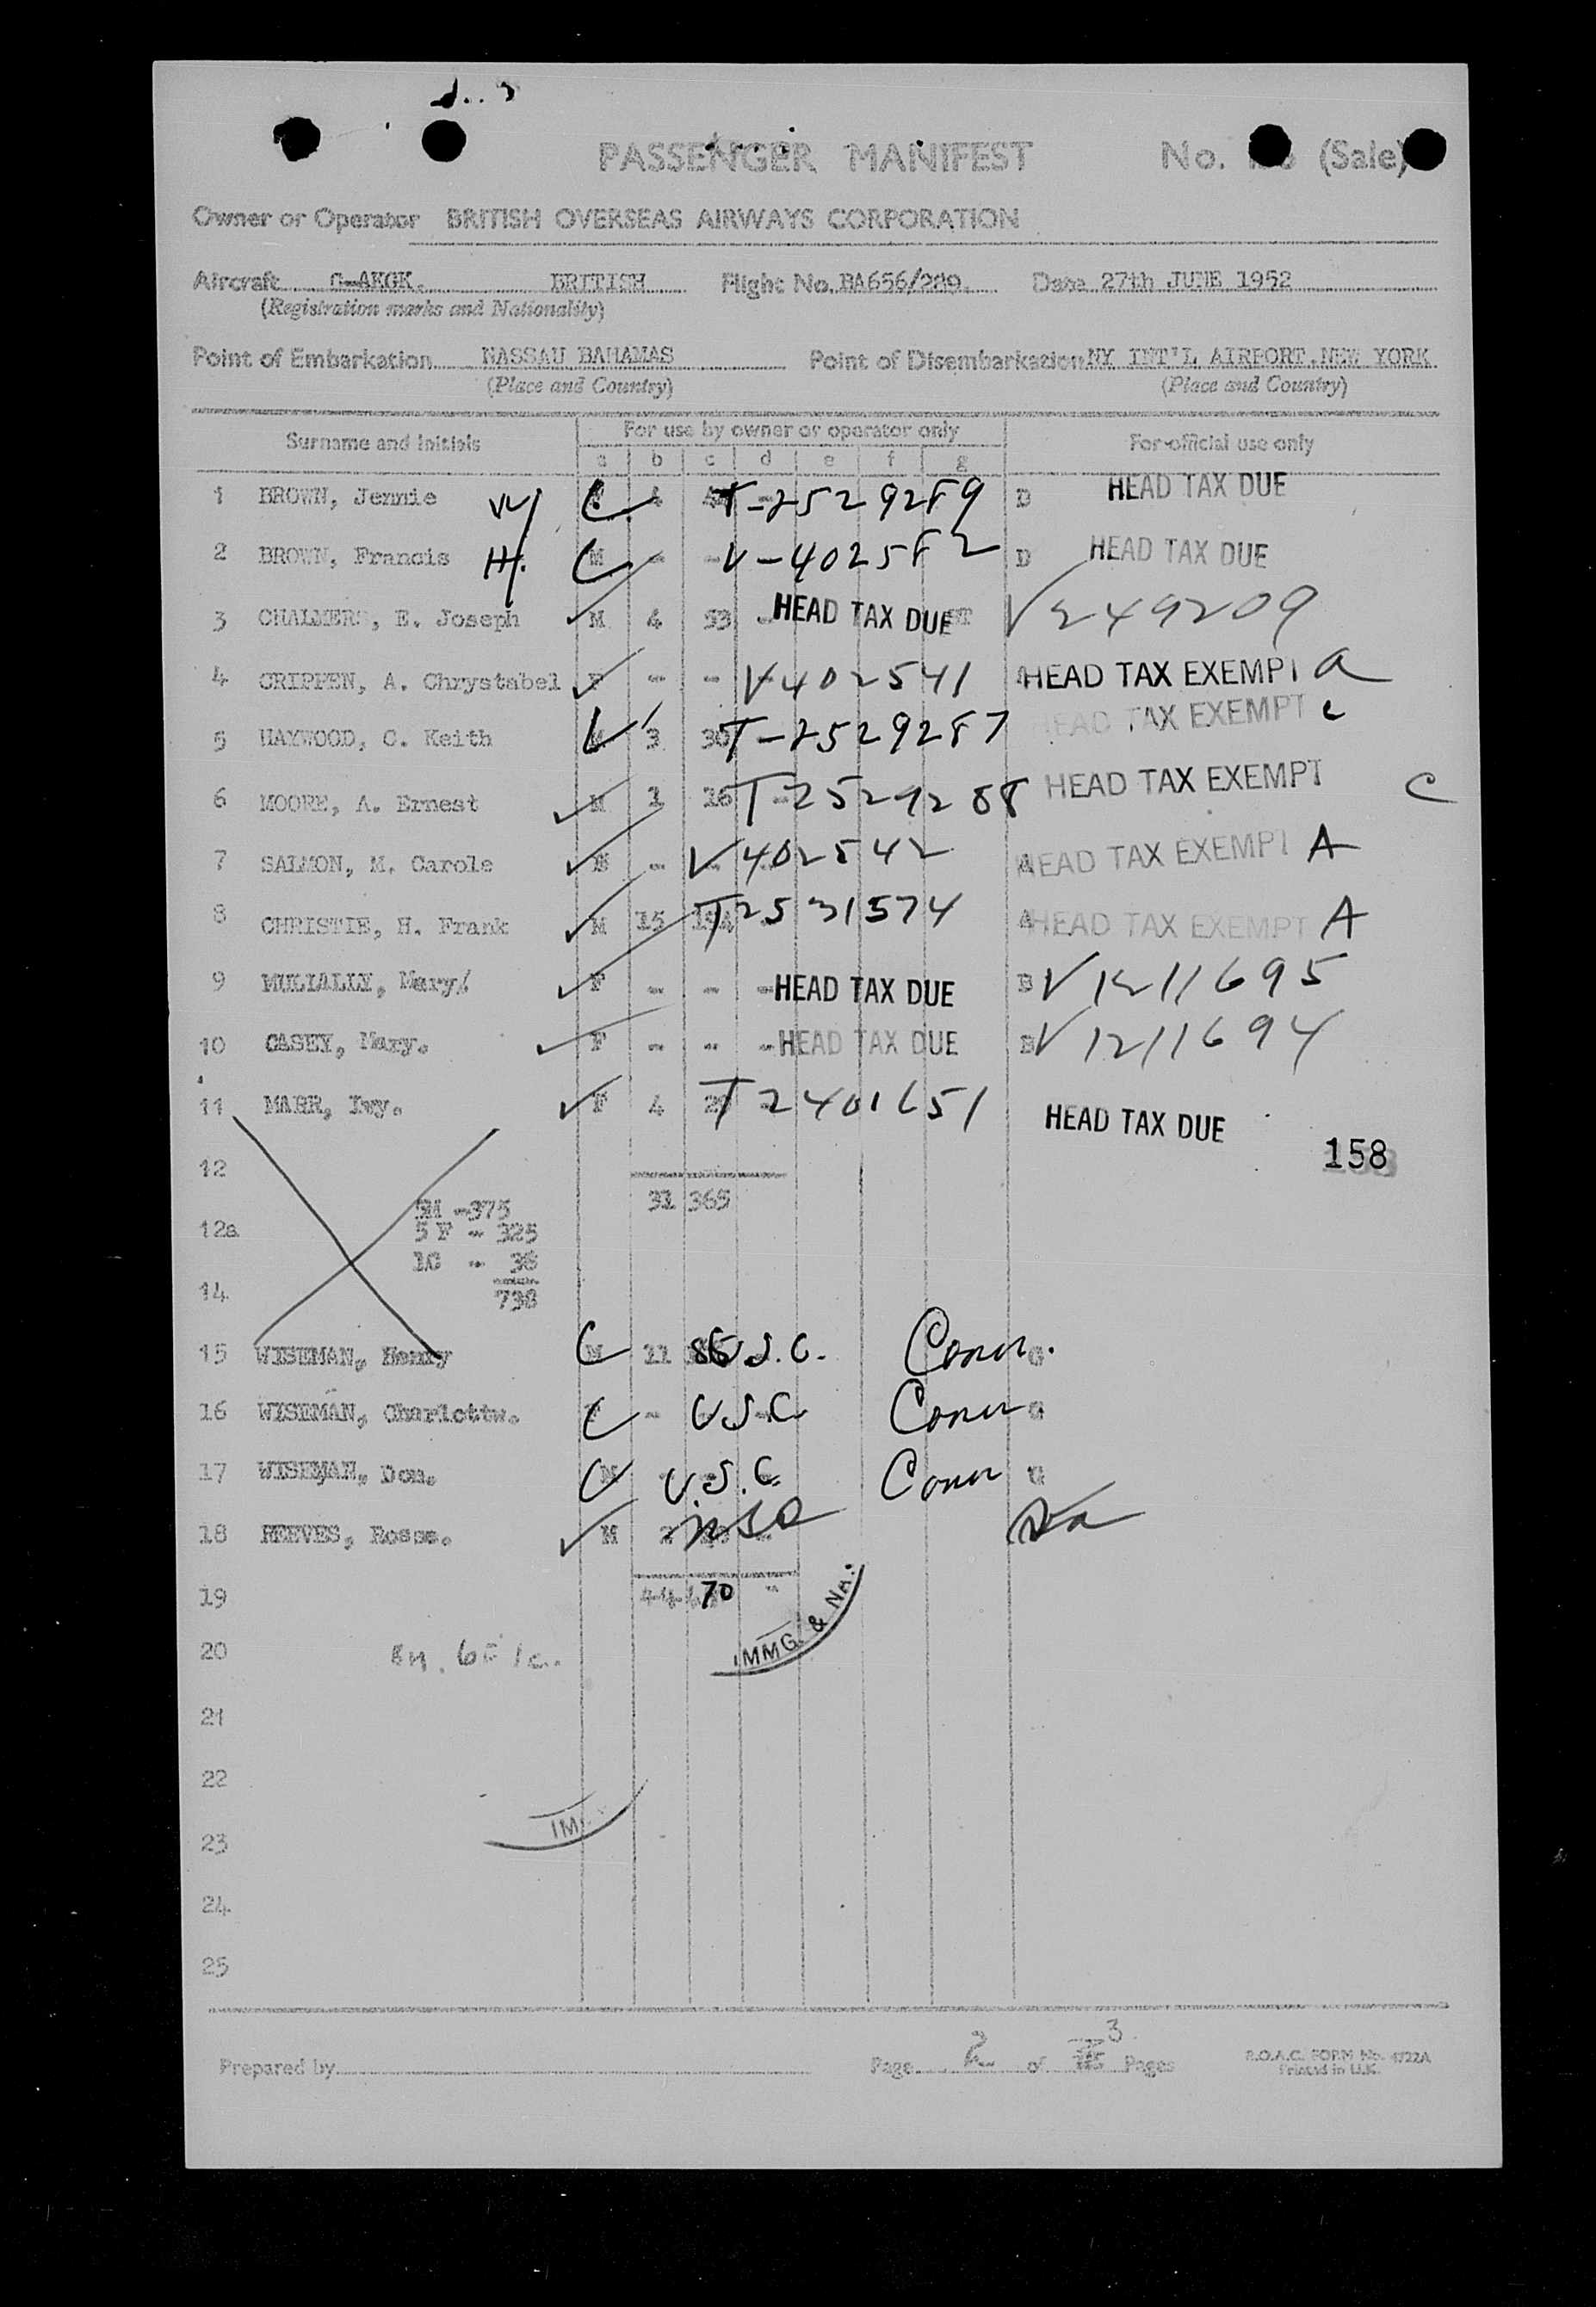 PASSENGER MANIFEST No. (Sale)
Owner or Operator BRITISH OVERSEAS AIRWAYS CORPORATION
Aircraft G-AKGK. BRITISH Flight No. BA656/289. Date 27th JUNE 1952
(Registration marks and Nationality)
Point of Embarkation NASSAU BAHAMAS Point of Disembarkation NY INT'L AIRPORT.NEW YORK
(Place and Country) (Place and Country)
Surname and Initials For use by owner or operator only For official use only
a b c d e f g
1 BROWN, Jennie W/ C 4 T-2529289 D HEAD TAX DUE
2 BROWN, Francis H/. C M - - V-402582 D HEAD TAX DUE
3 CHALMERS, E. Joseph M 4 53 - HEAD TAX DUE V249209
4 CRIPPEN, A. Chrystabel F - - V402541 HEAD TAX EXEMPT a
5 HAYWOOD, C. Keith 3 30 T-2529287 HEAD TAX EXEMPT c
6 MOORE, A. Ernest M 1 16 T-2529288 HEAD TAX EXEMPT C
7 SALMON, M. Carole - V402542 HEAD TAX EXEMPT A
8 CHRISTIE, H. Frank M 15 T2531574 A HEAD TAX EXEMPT A
9 MULLALLY, Mary F - - - HEAD TAX DUE B V1211695
10 CASEY, Mary. F - - - HEAD TAX DUE B V1211694
11 MARR, Ivy. F 4 T2401651 HEAD TAX DUE
158
12
31 365
5M -375
12a 5 F - 325
1C - 38
14
738
15 WISEMAN, Henry C M 11 U.S.C. Conn. G
16 WISEMAN, C - U.S.C Conn G
17 WISEMAN, Don. C M U.S.C. Conn G
18 REEVES, Rosss. M
19 44 70
IMMG. & NA.
20
21
22
IM
23
24
25
Prepared by Page 2 of 3 Pages B.O.A.C. FORM No. 4722A
Printed in U.K.